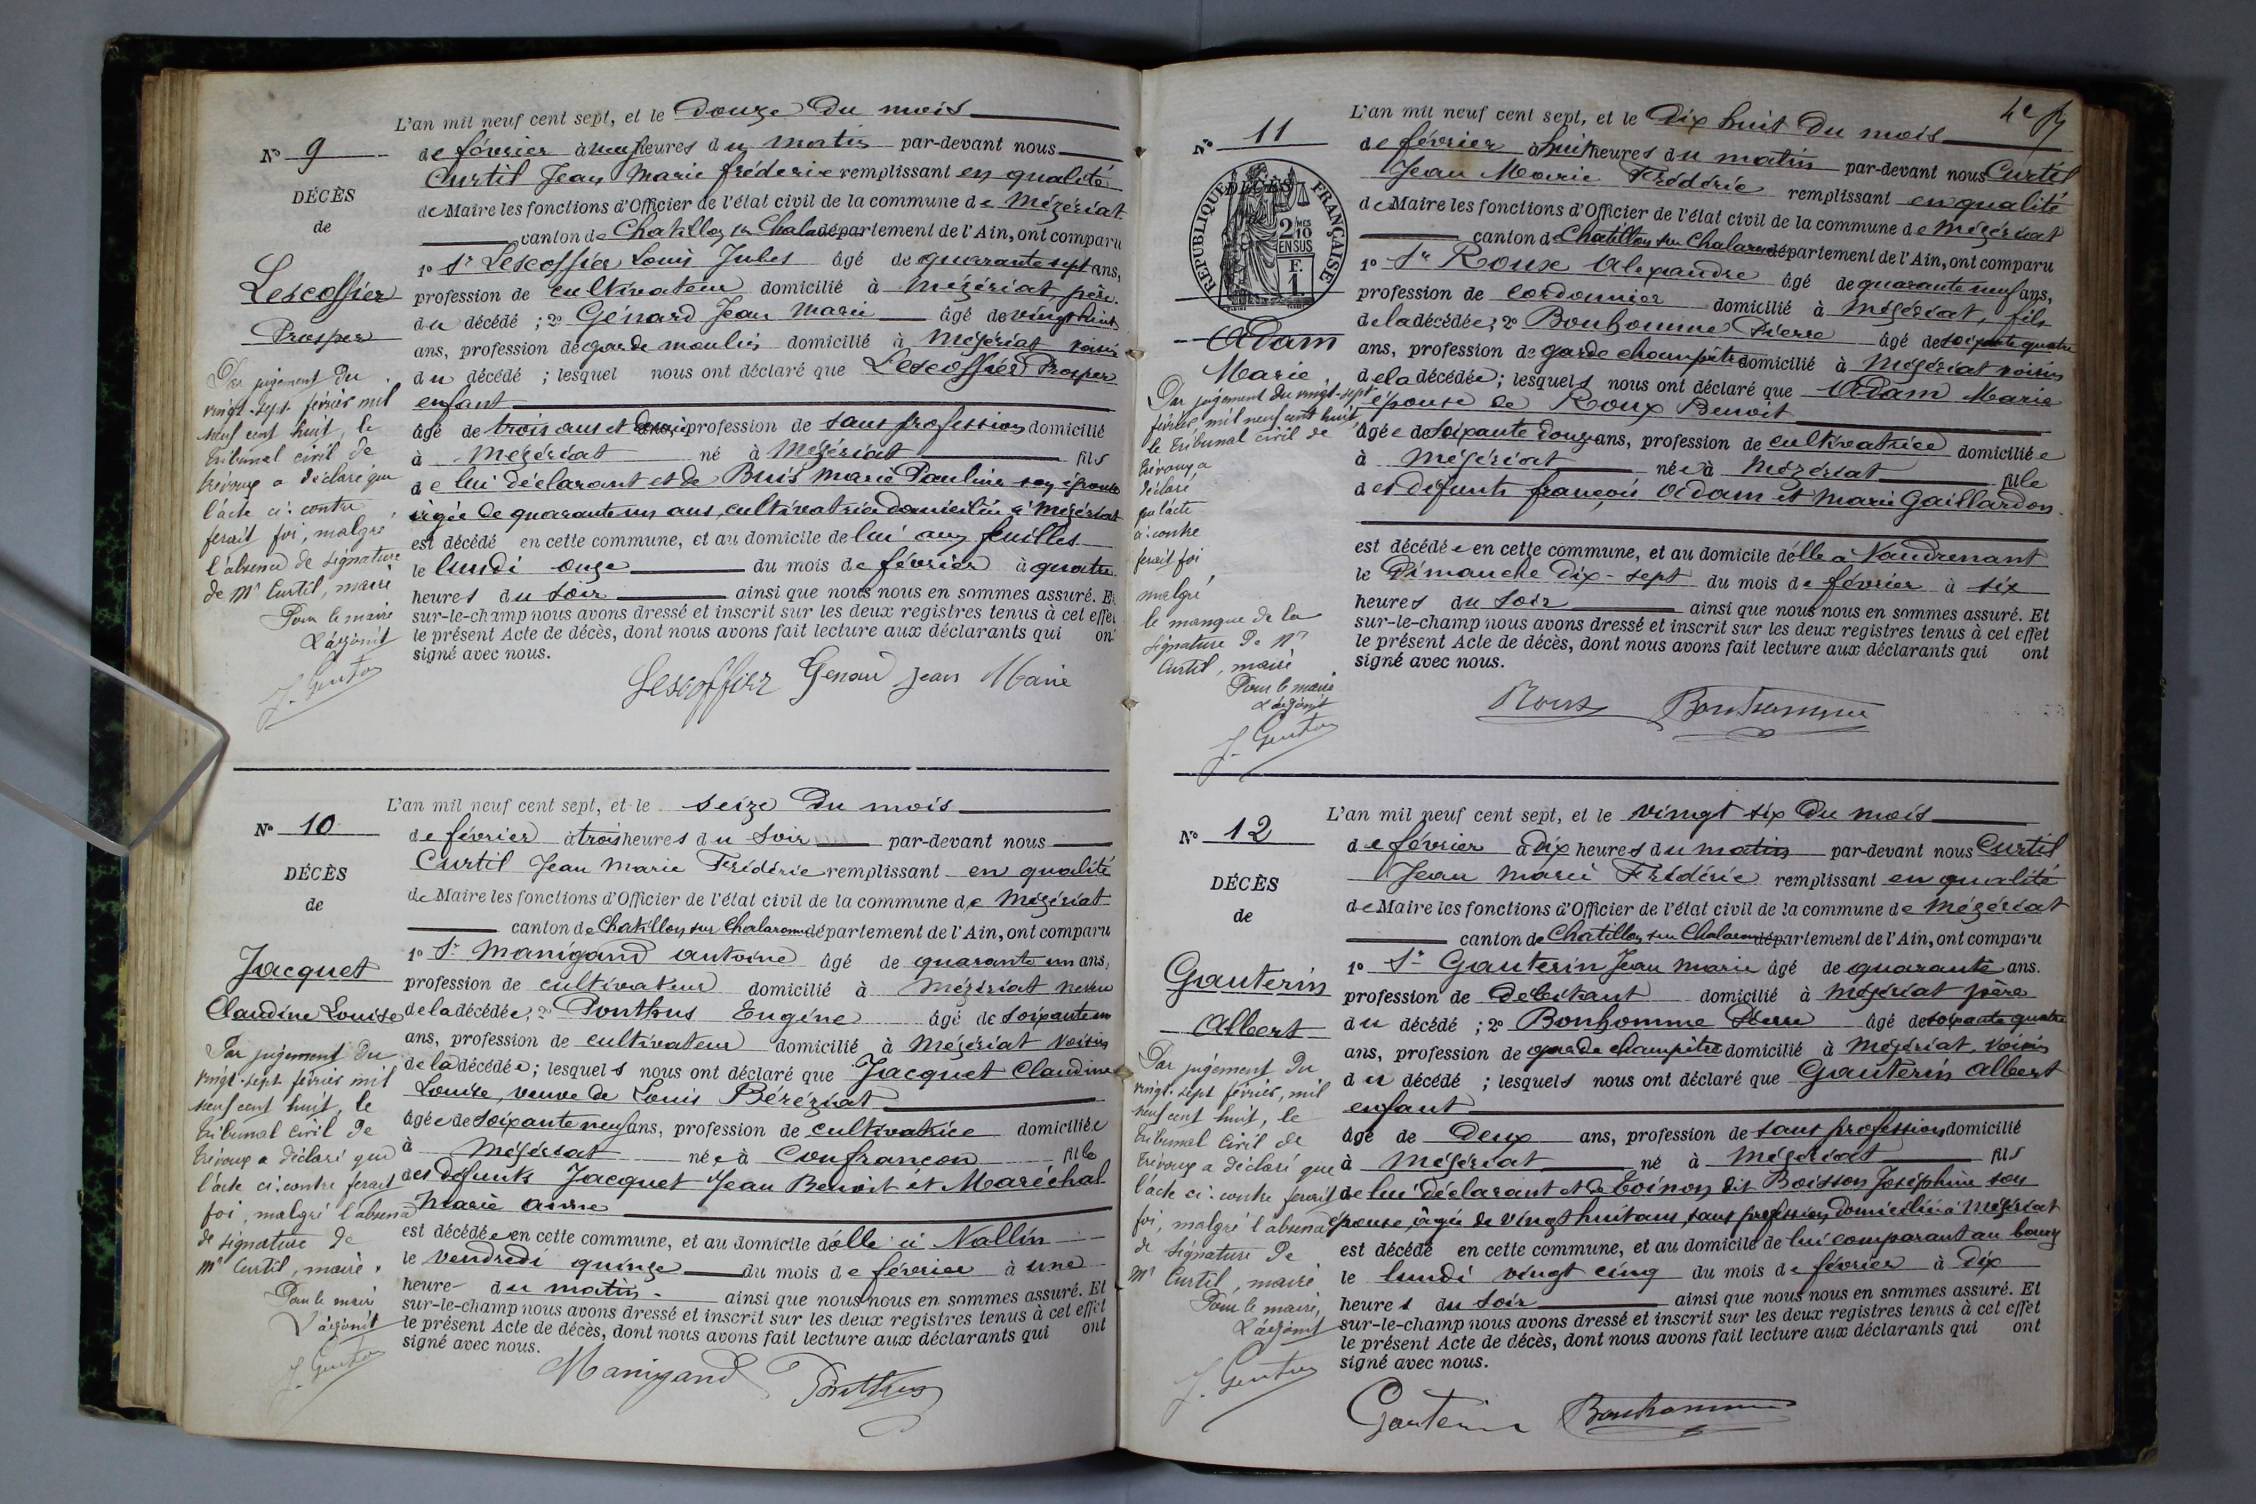 L'an mil neuf cent sept, et le Douze du mois
N° 9
de février à neuf heures du matin par-devant nous
Curtil Jean Marie frédéric remplissant en qualité
DÉCÈS
de Maire les fonctions d'Officier de l'état civil de la commune de Mézériat
de
canton de Chatillon sr Chala département de l'Ain, ont comparu
1° Sr Lescoffier Louis Jules âgé de quarante sept ans,
Lescoffier
profession de cultivateur domicilié à Mézériat père
Prosper
du décédé ; 2° Génard Jean Marie âgé de vingt huit
ans, profession de garde moulin domicilié à Mézériat voisin
du décédé ; lesquel nous ont déclaré que Lescoffier Prosper
enfant
âgé de trois ans et demi profession de sans profession domicilié
à Mézériat né à Mézériat fils
de lui déclarant et de Buis Marie Pauline son épouse
âgée de quarante un ans, cultivatrice domiciliée à Mézériat
est décédé en cette commune, et au domicile de lui aux feuilles
le lundi onze du mois de février à quatre
heures du soir ainsi que nous nous en sommes assuré. Et
sur-le-champ nous avons dressé et inscrit sur les deux registres tenus à cet effet
le présent Acte de décès, dont nous avons fait lecture aux déclarants qui ont
signé avec nous.
Par jugement du
vingt-sept février mil
neuf cent huit, le
tribunal civil de
Trévoux a déclaré que
l'acte ci-contre
ferait foi, malgré
l'absence de signature
de Mr Curtil, maire
Pour le maire
L'adjoint
J. Genton
Lescoffier Genard Jean Marie
L'an mil neuf cent sept, et le seize du mois
N° 10
de février à trois heures du soir par-devant nous
Curtil Jean Marie Frédéric remplissant en qualité
DÉCÈS
de Maire les fonctions d'Officier de l'état civil de la commune de Mézériat
de
canton de Chatillon sur Chalaronne département de l'Ain, ont comparu
1° Sr Manigand Antoine âgé de quarante un ans,
Jacquet
profession de cultivateur domicilié à Mézériat neveu
Claudine Louise
de la décédée ; 2° Ponthus Eugène âgé de soixante un
ans, profession de cultivateur domicilié à Mézériat voisin
de la décédée ; lesquels nous ont déclaré que Jacquet Claudine
Louise, veuve de Louis Bérézziat
âgée de soixante neuf ans, profession de cultivatrice domiciliée
à Mézériat née à Confrançon fille
des défunts Jacquet Jean Benoit et Maréchal
Marie Anne
est décédée en cette commune, et au domicile d'elle à Vallin
le vendredi quinze du mois de février à une
heure du matin ainsi que nous nous en sommes assuré. Et
sur-le-champ nous avons dressé et inscrit sur les deux registres tenus à cet effet
le présent Acte de décès, dont nous avons fait lecture aux déclarants qui ont
signé avec nous.
Par jugement du
vingt-sept février mil
neuf cent huit, le
tribunal civil de
Trévoux a déclaré que
l'acte ci-contre ferait
foi, malgré l'absence
de signature de
Mr Curtil, maire.
Pour le maire
L'adjoint
J. Genton
Manigand Ponthus
L'an mil neuf cent sept, et le Dix huit du mois
N° 11
de février à huit heures du matin par-devant nous Curtil
Jean Marie Frédéric remplissant en qualité
RÉPUBLIQUE FRANÇAISE
DÉCÈS
2/10 MES
EN SUS
F.
1
de Maire les fonctions d'Officier de l'état civil de la commune de Mézériat
canton de Chatillon sur Chalaronne département de l'Ain, ont comparu
1° Sr Roux Alexandre âgé de quarante neuf ans,
profession de cordonnier domicilié à Mézériat, fils
Adam
de la décédée ; 2° Bonhomme Pierre âgé de soixante quatre
Marie
ans, profession de garde champêtre domicilié à Mézériat voisin
de la décédée ; lesquels nous ont déclaré que Adam Marie
épouse de Roux Benoit
âgée de soixante douze ans, profession de cultivatrice domiciliée
à Mézériat née à Mézériat fille
des défunts françois Adam et Marie Gaillardon
est décédée en cette commune, et au domicile d'elle à Vaudrenant
le Dimanche Dix-sept du mois de février à six
heures du soir ainsi que nous nous en sommes assuré. Et
sur-le-champ nous avons dressé et inscrit sur les deux registres tenus à cet effet
le présent Acte de décès, dont nous avons fait lecture aux déclarants qui ont
signé avec nous.
Par jugement du vingt-sept
février mil neuf cent huit,
le Tribunal civil de
Trévoux a
déclaré
que l'acte
ci-contre
ferait foi
malgré
le manque de la
signature de Mr
Curtil, maire
Pour le maire
L'adjoint
J. Genton
Roux Bonhomme
L'an mil neuf cent sept, et le vingt six du mois
N° 12
de février à dix heures du matin par-devant nous Curtil
Jean Marie Frédéric remplissant en qualité
DÉCÈS
de Maire les fonctions d'Officier de l'état civil de la commune de Mézériat
de
canton de Chatillon sur Chalaronne département de l'Ain, ont comparu
1° Sr Gauterin Jean Marie âgé de quarante ans.
Gauterin
profession de Debitant domicilié à Mézériat père
Albert
du décédé ; 2° Bonhomme Pierre âgé de soixante quatre
ans, profession de garde champêtre domicilié à Mézériat, voisin
du décédé ; lesquels nous ont déclaré que Gauterin Albert
enfant
âgé de Deux ans, profession de sans profession domicilié
à Mézériat né à Mézériat fils
de lui déclarant et de Toinon dit Boisson Joséphine son
épouse, âgée de vingt huit ans, sans profession, domiciliée à Mézériat
est décédé en cette commune, et au domicile de lui comparant au bourg
le lundi vingt cinq du mois de février à Dix
heures du soir ainsi que nous nous en sommes assuré. Et
sur-le-champ nous avons dressé et inscrit sur les deux registres tenus à cet effet
le présent Acte de décès, dont nous avons fait lecture aux déclarants qui ont
signé avec nous.
Par jugement du
vingt-sept février, mil
neuf cent huit, le
Tribunal Civil de
Trévoux a déclaré que
l'acte ci-contre ferait
foi, malgré l'absence
de signature de
Mr Curtil, maire
Pour le maire,
L'adjoint
J. Genton
Gauterin Bonhomme